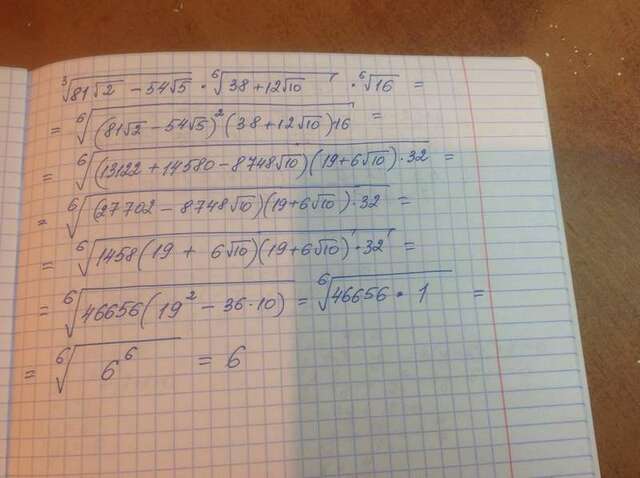 ∛(81√2 − 54√5) · ⁶√(38 + 12√10) · ⁶√16 =
= ⁶√((81√2 − 54√5)² (38 + 12√10) · 16) =
= ⁶√((13122 + 14580 − 8748√10)(19 + 6√10) · 32) =
= ⁶√((27702 − 8748√10)(19 + 6√10) · 32) =
= ⁶√(1458(19 + 6√10)(19 + 6√10) · 32) =
= ⁶√(46656(19² − 36·10)) = ⁶√(46656 · 1) =
= ⁶√(6⁶) = 6